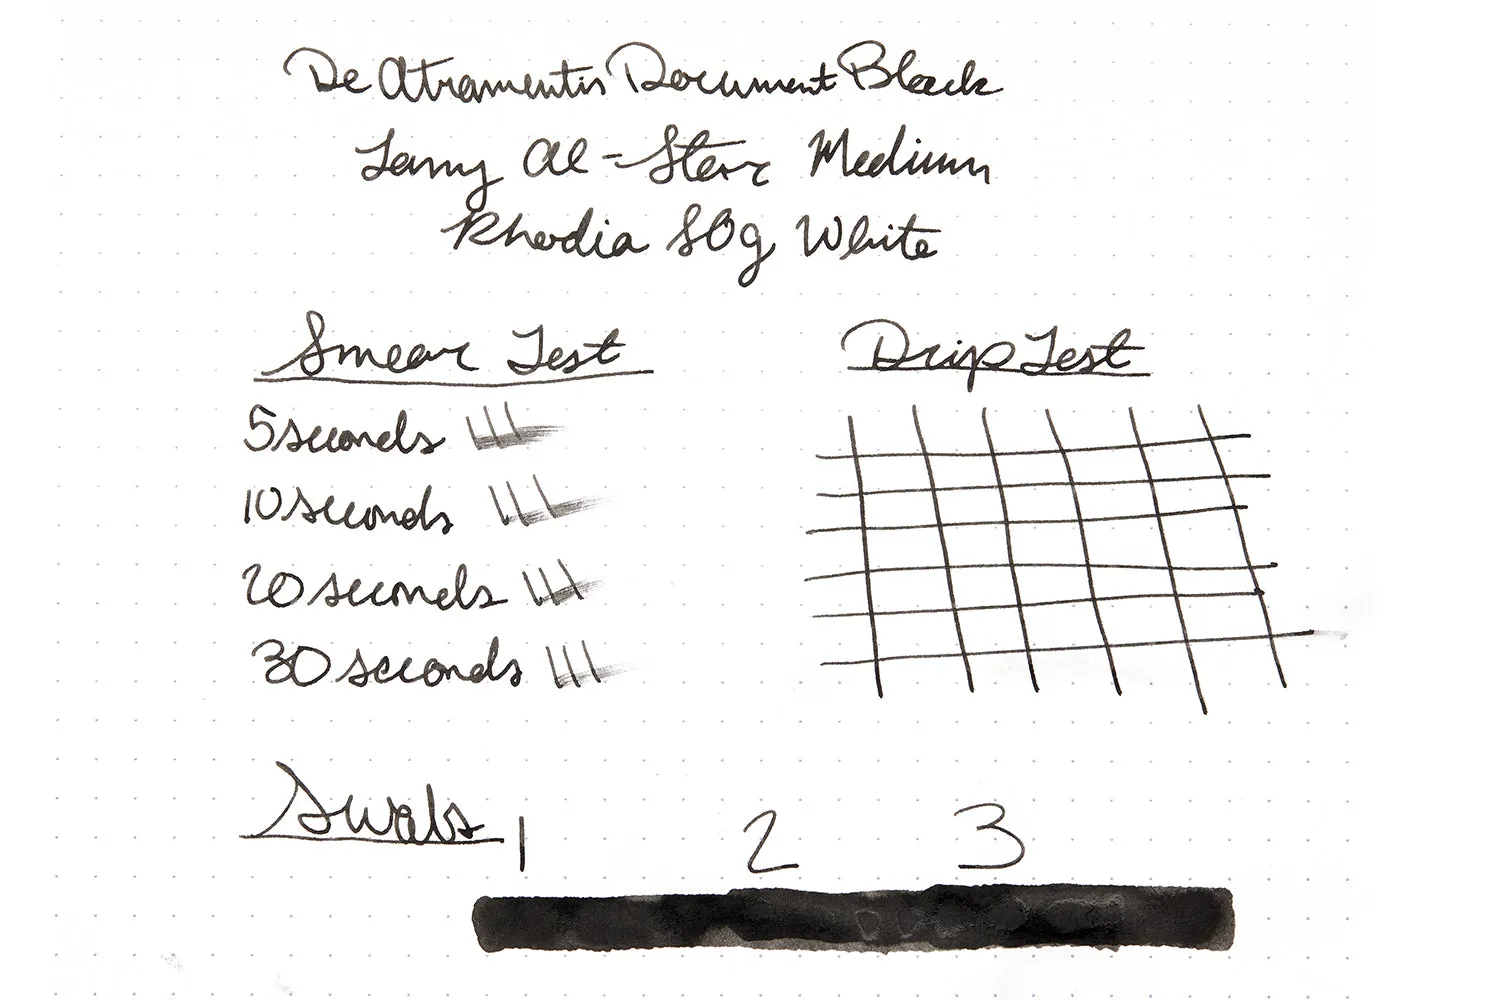 De Atramentis Document Black
Lamy Al-Star Medium
Rhodia 80g White
Smear Test
Drip Test
5 seconds
10 seconds
20 seconds
30 seconds
Swabs
1 2 3